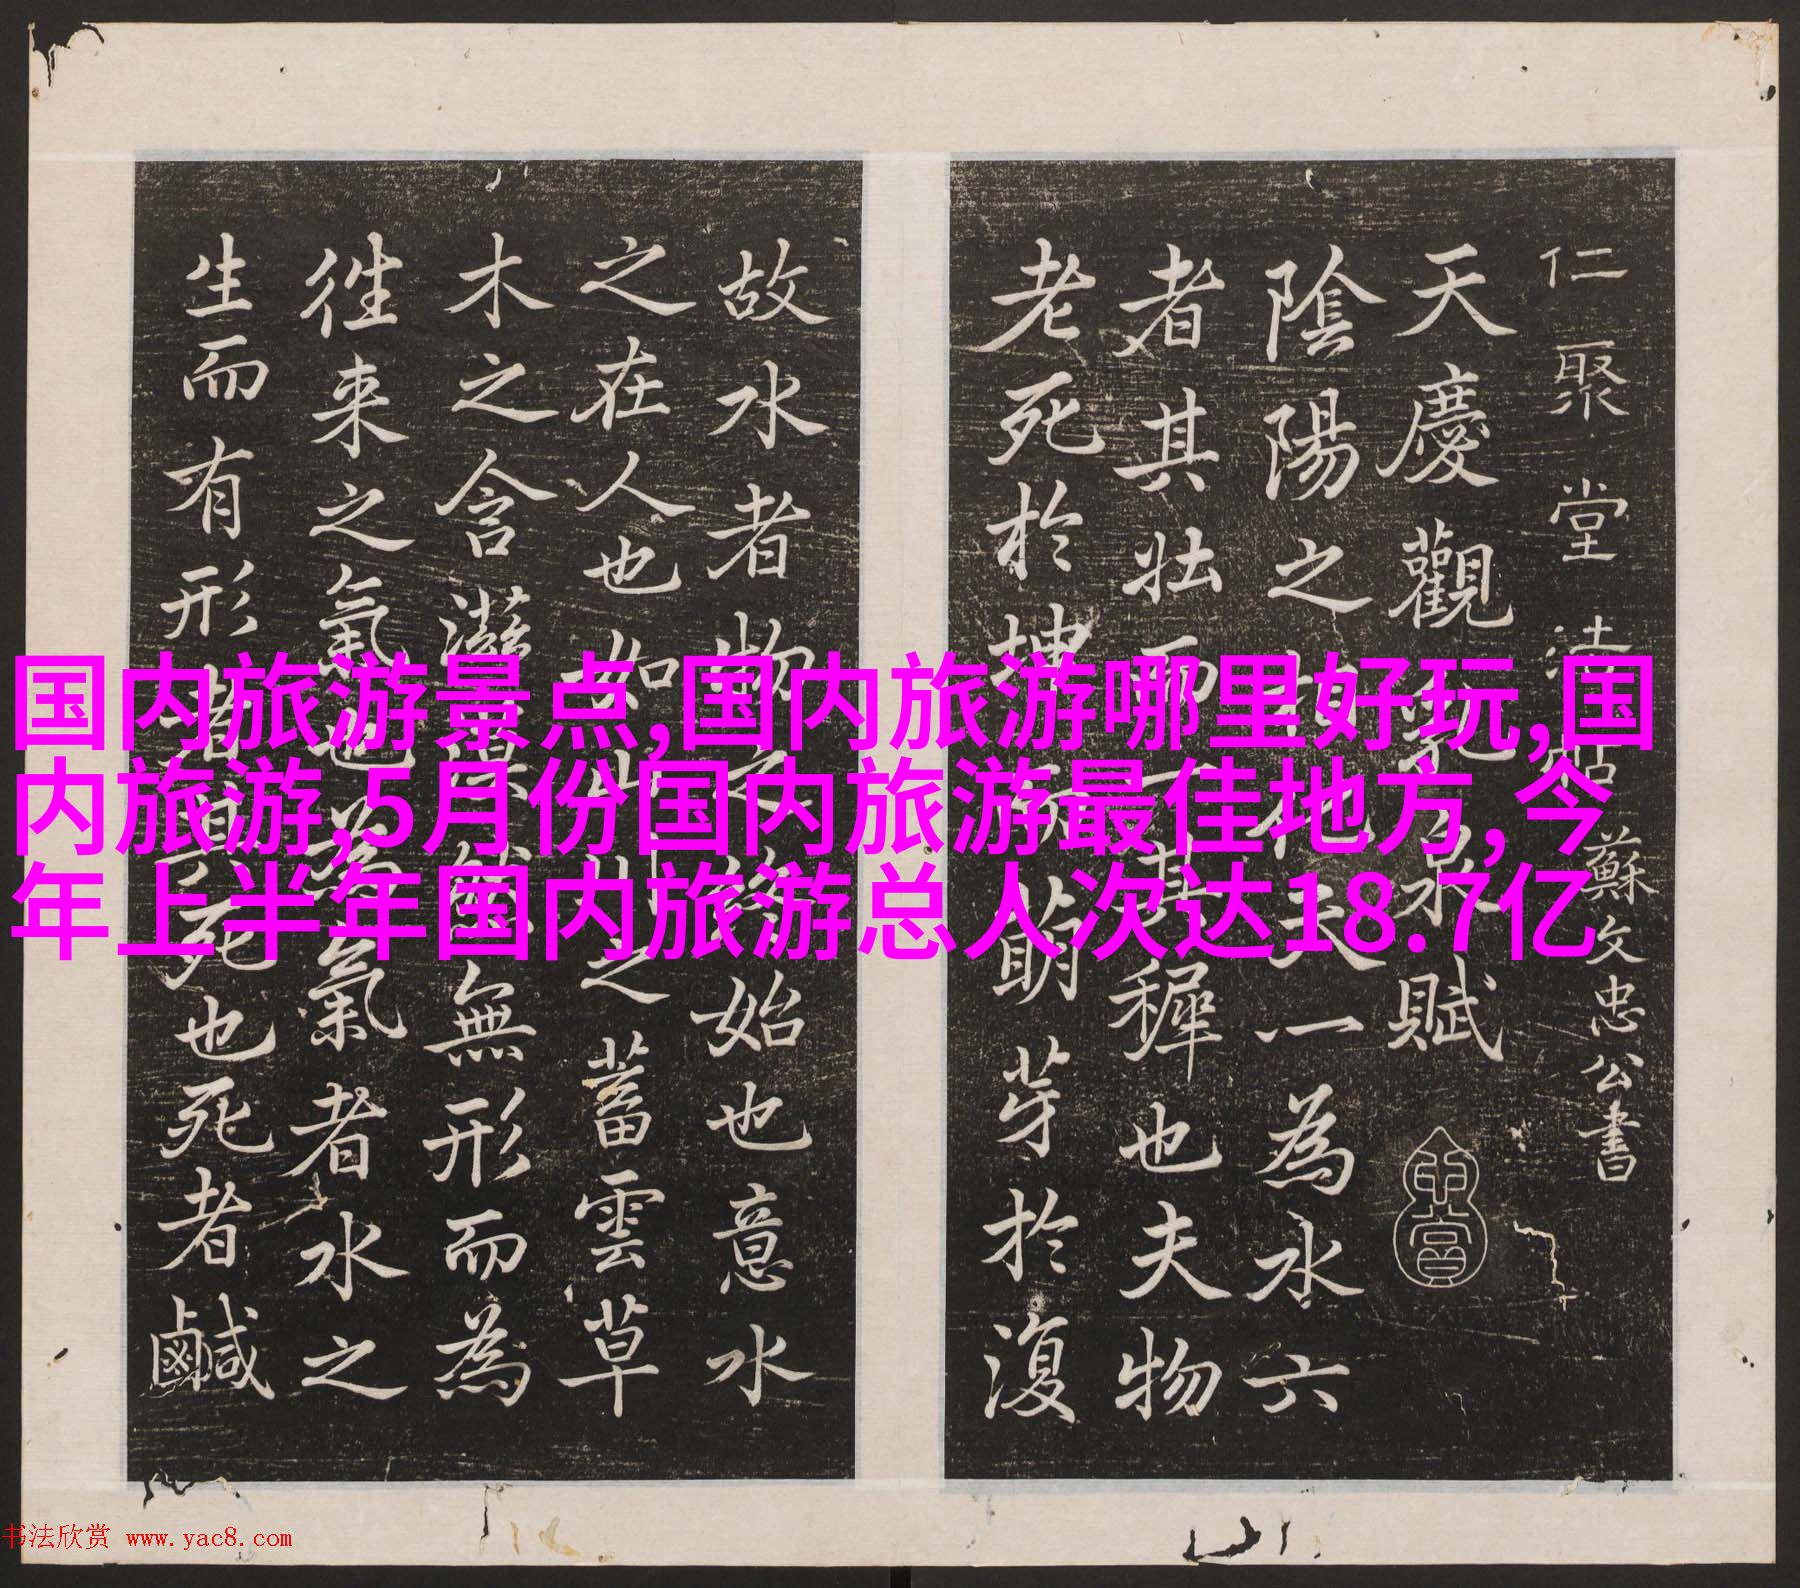 仁聚堂法帖 蘇文忠公書
天慶觀乳泉賦
陰陽之相化天一為水六
者其壯而一者其穉也夫物
老死於坤而萌芽於復
故水者物之終始也意水
之在人也如山川之蓄雲草
木之含滋漠然無形而為
徃来之氣也為氣者水之
生而有形者其死也死者鹹
国内旅游景点,国内旅游哪里好玩,国
内旅游,5月份国内旅游最佳地方,今
年上半年国内旅游总人次达18.7亿
书法欣赏 www.yac8.com